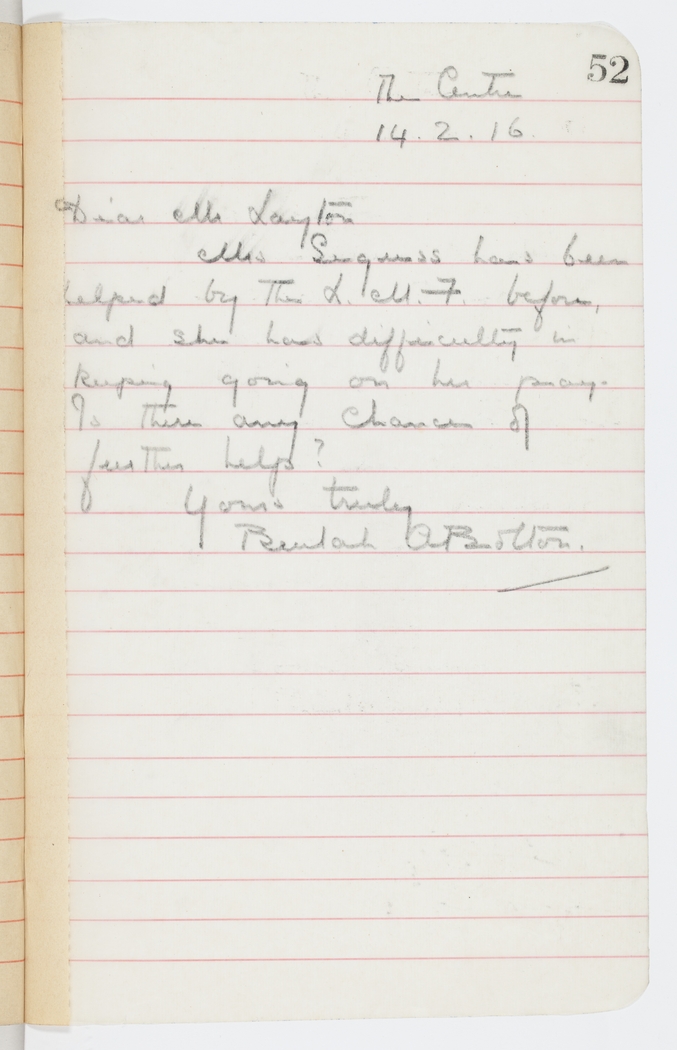 52
The Centre
14.2.16.
Dear Mr Layton
Mrs has been
helped by The L.M.F. before,
and she has difficulty in
keeping going on her pay.
Is there any chance of
further help?
Yours truly
Beulah A Bolton.